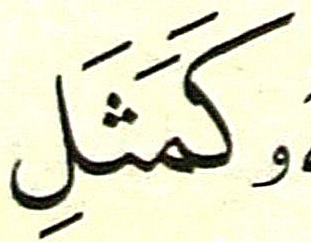 ۥ كَمَثَلِ